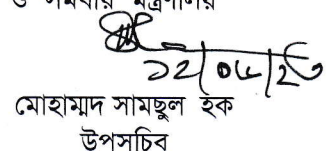 ও সমবায় মন্ত্রণালয়
১২/০৮/২৩
মোহাম্মদ সামছুল হক
উপসচিব